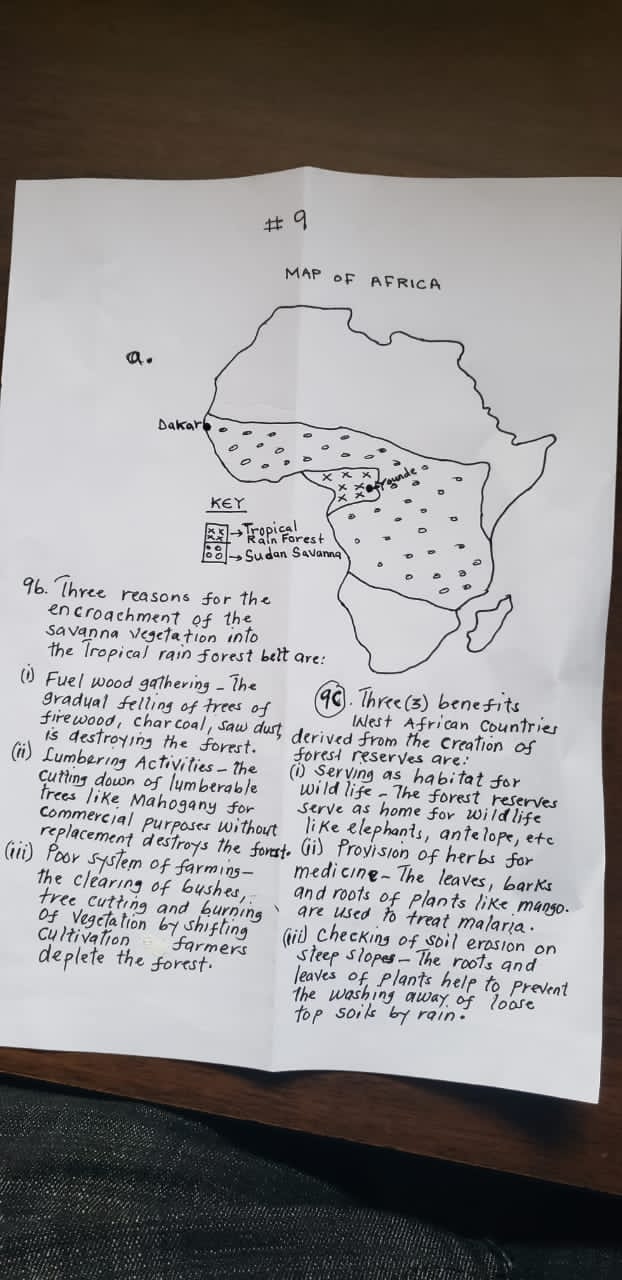 # 9
MAP OF AFRICA
a.
Dakar
Yaounde
KEY
xx xx → Tropical
Rain Forest
oo oo → Sudan Savanna
9b. Three reasons for the
encroachment of the
savanna vegetation into
the Tropical rain forest belt are:
(i) Fuel wood gathering - The
gradual felling of trees of
firewood, charcoal, saw dust
is destroying the forest.
(ii) Lumbering Activities - the
cutting down of lumberable
trees like Mahogany for
commercial purposes without
replacement destroys the forest.
(iii) Poor system of farming -
the clearing of bushes,
tree cutting and burning
of vegetation by shifting
cultivation farmers
deplete the forest.
9C. Three (3) benefits
West African Countries
derived from the creation of
forest reserves are:
(i) Serving as habitat for
wild life - The forest reserves
serve as home for wildlife
like elephants, antelope, etc
(ii) Provision of herbs for
medicine - The leaves, barks
and roots of plants like mango.
are used to treat malaria.
(iii) Checking of soil erosion on
steep slopes - The roots and
leaves of plants help to prevent
the washing away of loose
top soils by rain.